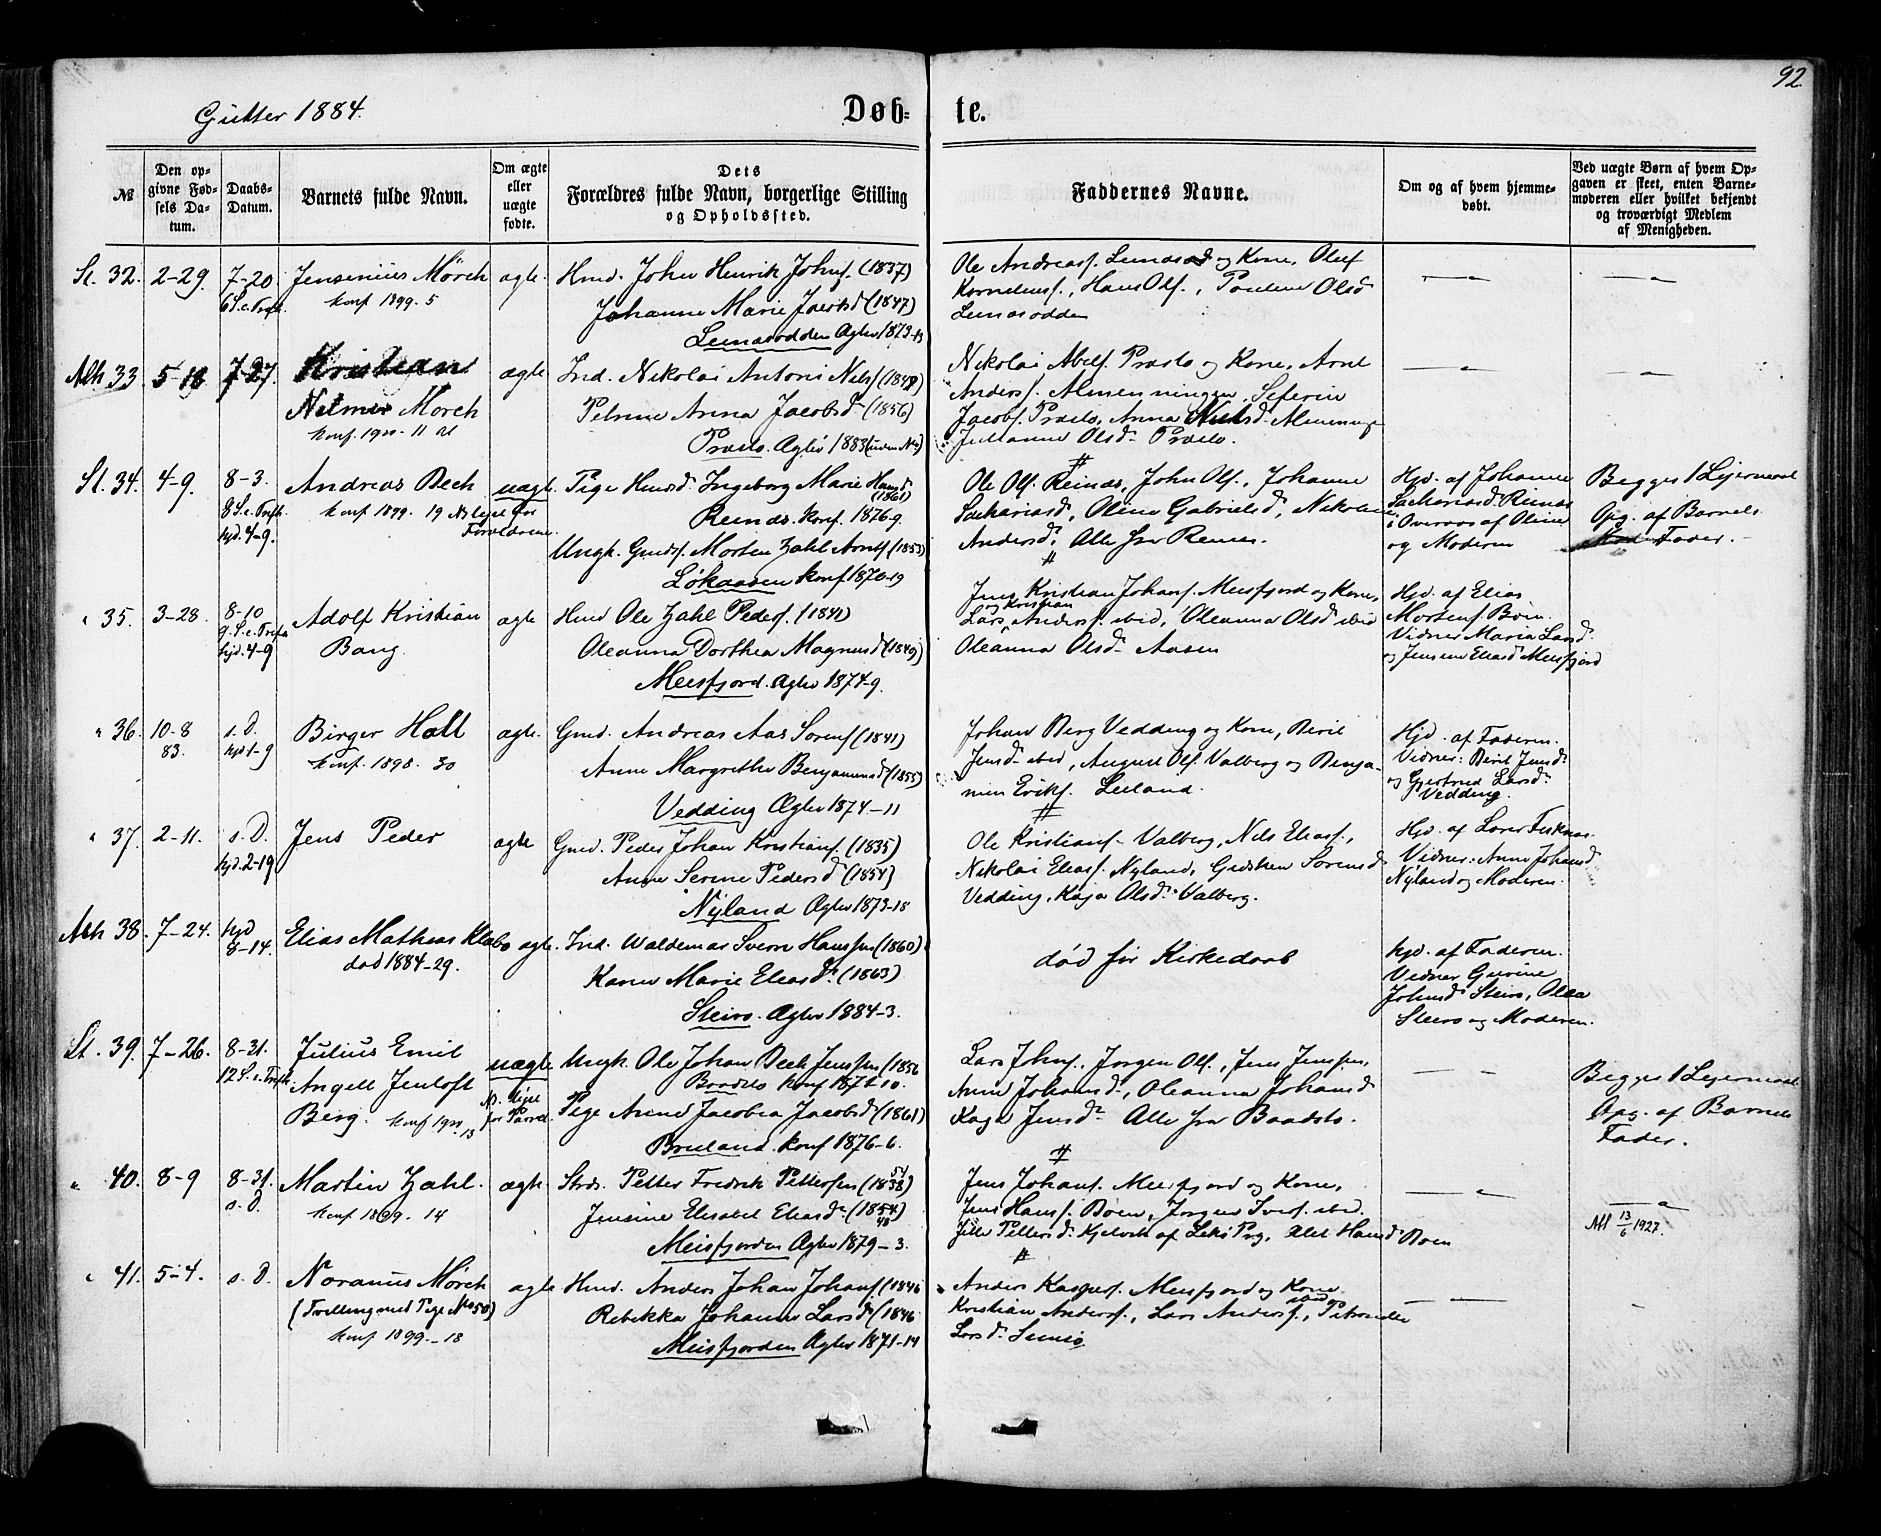 92
Gutter 1884.
Døb-
te.
№
Den op-
givne Fød-
sels Da-
tum.
Daabs-
Datum.
Barnets fulde Navn.
Om ægte
eller
uægte
fødte.
Dets
Forældres fulde Navn, borgerlige Stilling
og Opholdssted.
Faddernes Navne.
Om og af hvem hjemme-
døbt.
Ved uægte Børn af hvem Op-
gaven er skeet, enten Barne-
moderen eller hvilket bekjendt
og troværdigt Medlem
af Menigheden.
St. 32. 2-29. 7-20
6 S. e. Tref.
Jensenius Mørch
konf 1899. 5
ægte.
Hmd. Johan Henrik Johnf. (1837)
Johanne Marie Jacobsd (1847)
Ægtev 1873-13
Ole Andreasf. og Kone, Oluf
Kornelius., Hans Olf., Pauline Olsd
33 5-18 7-27.
Kristian
Mørch
konf. 1900. 11
ægte
Ind. Nikolai Antoni Nilsf (1848)
Petrine Anna Jacobsd (1856)
Præstø. Ægtev 1883 (uden No)
Nikolai Abelf. Præstø og Kone, Arnt
Andersf. Almenningen, Seferin
Jacobf. Præstø, Anna Nielsd Almenning
Julianne Olsd Præstø.
St. 34. 4-9. 8-3.
8 S. e. Tref.
hjd. 4-9.
Andreas Bech
konf 1899. 19
Forældrene.
uægte
Pige Hmdsd. Ingeborg Marie Hansd
(1861)
Reinæs. Konf. 1876-9.
Ungk. Gmdsf. Morten Zahl Arntf (1853)
Løkaasen konf 1870-19
Ole Olf. Reinæs, John Olf., Johanne
Sachariasd, Oline Gabrielsd, Nikoline
Andersd. Alle fra Reinæs.
Hjd. af Johanne
Sachariasd. Reinæs
i Overvær af Oline
og Moderen
Begges 1 Lejermaal
Opg. af Barnets
Fader.
" 35. 3-28. 8-10
9 S. e. Tref.
hjd. 4-9
Adolf Kristian
Bang
ægte
Hmd Ole Zahl Pedersf. (1841)
Oleanna Dorthea Magnusd (1849)
Meisfjord. Ægtev 1874-9.
Jens Kristian Johansf. Meisfjord og Kone,
og Kristian
Lars Andersf. ibid, Oleanna Olsd ibid
Oleanna Olsd Aasen
Hjd. af Elias
Mortensf. Bøen.
Vidner Maria Larsd
og Jensine Eliasd Meisfjord
" 36. 10-8
83.
s. D.
hjd 1-9
Birger Hall
konf. 1898. 30
ægte.
Gmd. Andreas Aas Sørensf (1841)
Anne Margrethe Benjaminsd (1855)
Vedding Ægtev 1874-11
Johan Berg Vedding og Kone, Beril
Jensd ibid, August Olf. Valberg og Benja-
min Erikf. Leiland.
Hjd. af Faderen.
Vidner: Beril Jensd
og Gjertrud Larsd
Vedding.
" 37. 2-11. s. D.
hjd. 2-19
Jens Peder
ægte
Gmd. Peder Johan Kristianf. (1835)
Anne Serine Pedersd (1854)
Nyland Ægtev 1873-18
Ole Kristianf. Valberg, Nils Eliasf.,
Nikolai Eliasf. Nyland, Gidsken Sørensd
Vedding, Kaja Olsd Valberg.
Vidner: Anne Johansd
Nyland og Moderen.
38. 7-24. hjd
8-14.
Elias Mathias Klæbo
død 1884-29.
ægte.
Ind. Waldemar Svern Hanssen (1860)
Karen Marie Eliasd. (1863)
Steiro. Ægtev 1884-3.
død før Kirkedaab
hjd. af Faderen.
Vidner Gurine
Johnsd Steiro, Olea
Steiro og Moderen.
St. 39. 7-26. 8-31.
12 S. e. Tref.
Julius Emil
Angell Jentoft
Berg. konf 1900 13
uægte
Ungk. Ole Johan Beck Jenssen (1856
konf 1871-10.
Pige Anne Jacobea Jacobsd (1861)
Bruland konf 1876-6.
Lars Johnf., Jørgen Olf., Jens Jenssen,
Anne Johansd, Oleanna Johansd
Jensd. Alle fra
Begges 1 Lejermaal
Opg. af Barnets
Fader.
" 40. 8-9 8-31.
s. D.
Martin Zahl.
konf 1899. 14
ægte.
Strds. Petter Fredrik Pettersen (1858)
Jensine Elisabet Eliasd. (1854)
Meisfjorden Ægtev 1879-3.
Jens Johansf. Meisfjord og Kone,
Jens Hansf. Bøen, Jørgen Iversf. ibid.
Pettersd. Kjelvik af Leks Prg, Alet Hansd Bøen
Att 13/6 1927.
" 41. 5-4. s. D.
Noranus Mørch
(Tvilling med Pige No 50)
konf 1899.-18
ægte
Hmd. Anders Johan Johansf (1846
Rebekka Johanne Larsd (1846
Meisfjorden Ægtev 1871-14
Anders Kaspersf. Meisfjord og Kone
ibid
Kristian Andersf., Lars Andersf., Petronelle
Larsd.